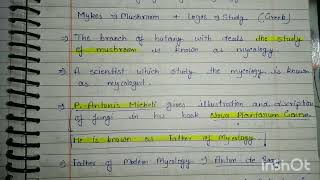 Mykes → Mushroom + Logos → Study (Greek)
⇒ The branch of botany with deals the study
of mushroom is known as mycology.
⇒ A scientist which study the mycology is known
as mycologist.
⇒ P. Antonio Micheli gives illustration and discription
of fungi in his book Nova Plantarum Genera.
He is known as Father of Mycology
⇒ Father of Modern Mycology → Anton de Bary
InShot